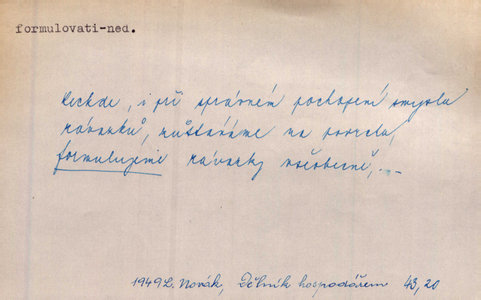 formulovati-ned.
leckde, i při správném pochopení smyslu
závazků, zůstáváme na povrchu,
formulujeme závazky všeobecně, ...
1949 L. Novák, Dělník hospodářem 43,20